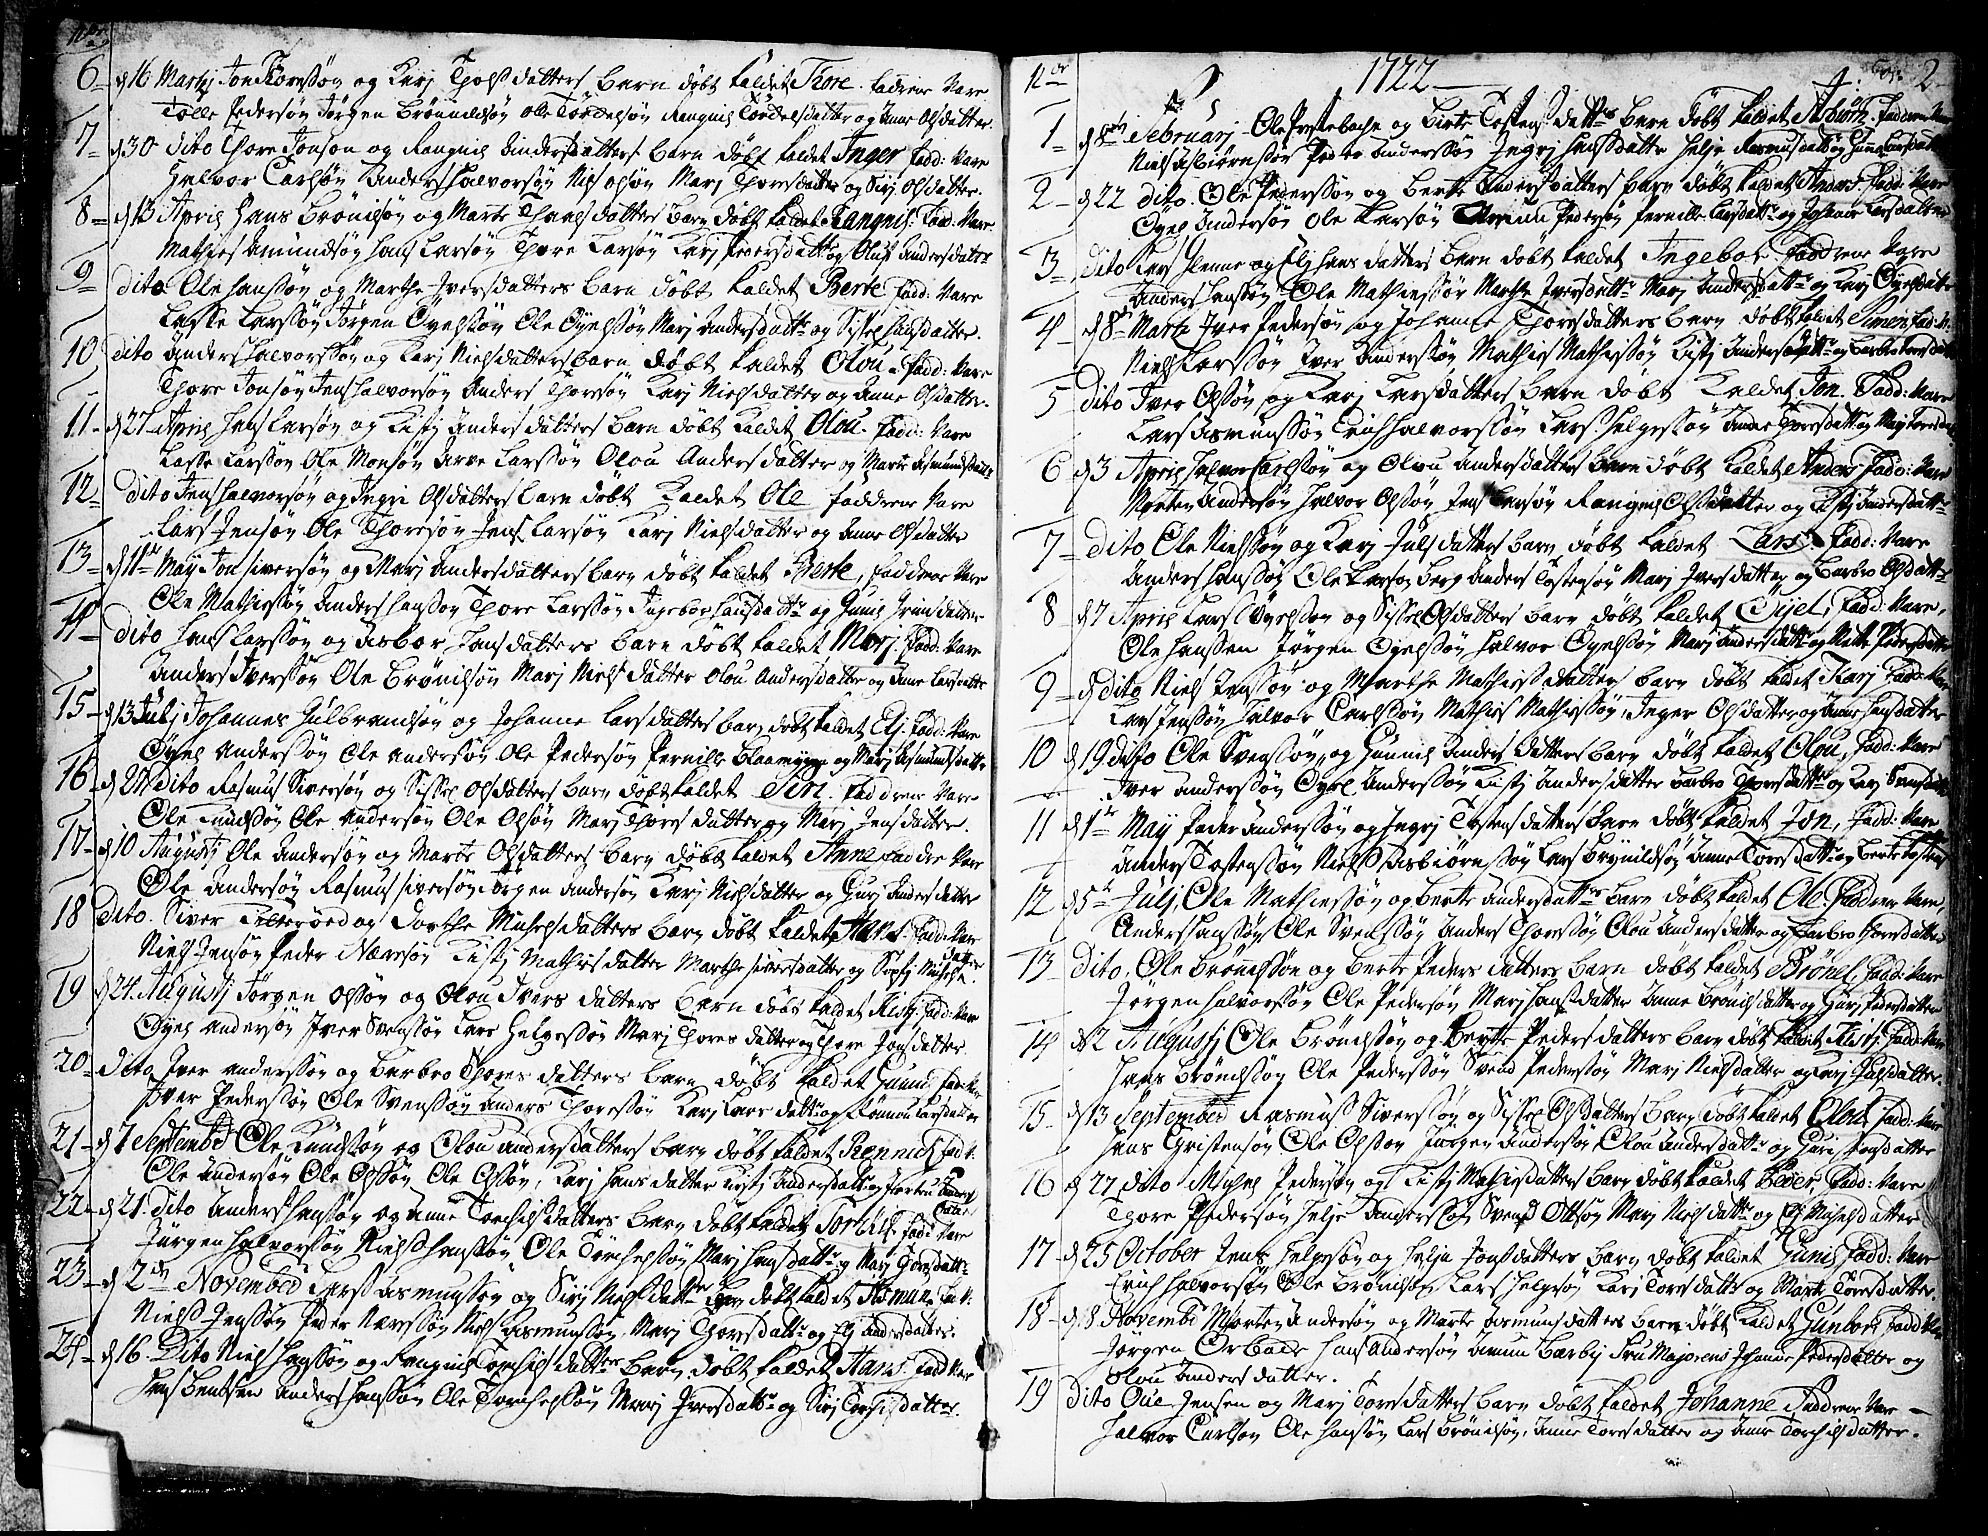 No
6 d 16 Martij Jon Thoressøn og Karj Tholsdatters barn døbt kaldet Thore. fadrene Vare
Tolle Pedersøn Jørgen Brønnildsøn Olle Tordelsøn Rangnil Tordelsdatter og Anne Olsdatter.
7 d 30 dito Thore Jonson og Rangnil Andersdatters barn døbt kaldet Inger. fadd: Vare
Halvor Carlsøn Anders Halvorsøn Niels Olsøn Marj Thorsdatter og Sirj Olsdatter.
8 d 13 April Hans Brønilsøn og Marte datters barn døbt kaldet Rangnil. fad: Vare
Mathies Amundsøn Hans Larsøn Thore Larsøn Karj Pedersdatt og Oluf Andersdattr
9 dito Ole Hanssøn og Marthe Iversdatters barn døbt kaldet Berte fadd: Vare
Lasse Larssøn Jørgen Øyelsøn Ole Øyelssøn Marj Andersdattr og Sissel Hansdatter.
10 dito Anders Halvorssøn og Karj Nielsdatters barn døbt kaldet Olou. fadd: Vare
Thore Jonsøn Jens Halvorsøn Anders Thoresøn Karj Nielsdatter og Anne Olsdatter.
11 d 27 April Hans Larsøn og Kistj Anders datters barn døbt kaldet Olou. fadd: Vare
Lasse Larssøn Ole Monsøn Arve Larssøn Olou Andersdatter og Marte Asmundsdattr
12 dito Jens Halvorsøn og Ingri Olsdatters barn døbt kaldet Ole faddrene Vare
Lars Jensøn Ole Thoresøn Jens Larsøn Karj Nielsdatter og Anne Olsdatter
13 d 11te Maij Jon Siversøn og Marj Andersdatters barn døbt kaldet Berte, faddrene Vare
Ole Mathiessøn Anders Hansson Thore Larssøn Ingebor Hansdattr og Gunil datter
14 dito Hans Larssøn og Asbor Hansdatters barn døbt kaldet Marj. fadd: Vare
Anders Iverssøn Ole Brønilsøn Marj Nielsdatter Olou Andersdatter og Anne Larsdatter
15 d 13 Julj Johannes Gulbrandsøn og Johanne Larsdatters barn døbt kaldet Elj. fadd: Vare
Øyel Anderssøn Ole Andersøn Ole Pedersøn Pernille Blaamyren og Marj Asmundsdatter
16 dito Rasmus Siversøn og Sissel Olsdatters barn døbt kaldet Siri. faddrene Vare
Ole Knudssøn Ole Andersøn Ole Olsøn Marj Thorsdatter og Marj Jensdatter.
17 d 10 Augustj Ole Andersøn og Marte Olsdatters barn døbt kaldet Anne faddre Var
Ole Andersøn Rasmus Siversøn Jørgen Andersøn Karj Nielsdatter og Gurj Andersdatter
18 dito. Siver Telterøed og Dorthe Michelsdatters barn døbt kaldet fadd: Vare
Niels Jensøn Peder Nærsøn Kistj Mathisdatter Marthe Siversdatter og Sophj Michels datter.
19 d 24 Augustj Jørgen Olsøn og Olou Ivers datters barn døbt kaldet Kistj. fadd: Vare
Øyel Andersøn Iver Svenssøn Lars Helgessøn Marj Thores datter og Thore Jonsdatter
20 dito Iver Anderssøn og Barbro Thores datters barn døbt kaldet Gunnil fadd:
Iver Pedersøn Ole Svenssøn Anders Thoressøn Karj Lars dattr og Larsdatter
21 d 7 Septembr Ole Knudssøn og Olou Andersdatters barn døbt kaldet fad
Ole Andersøn Ole Olssøn Ole Olsøn, Karj Hansdatter Kistj Andersdattr og
22 d 21. dito Anders Hanssøn og Anne Torchilsdatters barn døbt kaldet Torkild. fadd Vare
Jørgen Halvorssøn Niels Hanssøn Ole Torchelssøn Marj Hansdattr og Marj Thoresdattr
23 d 2den Novembr Lars Asmunssøn og Sirj Nielsdatters barn døbt kaldet fad V:
Niels Jenssøn Peder Nærssøn Niels Asmunssøn, Marj Thorsdattr og Elj Andersdatter.
24 d 16 Dito Niels Hanssøn og Rangnil Torchilsdatters barn døbt kaldet Hans. fadd Var
Hans Bentsen Anders Hanssøn Ole Torchelssøn Marj Iversdattr og Sirj Torchilsdatter.
No 1722 2
1 d 8de Februarj Ole Prestebache og Birte Tostens datters barn døbt kaldet Asbiørn. faddrene Vare
Niels Asbiørnssøn Peder Anderssøn Ingrj Hansdatter Helje Rasmusdatter og
2 d 22 dito. Ole Pederssøn og Berte Andersdatters barn døbt kaldet Anders. fadd: Vare
Øyel Andersøn Ole Larsøn Pedersøn Pernille Larsdattr og Johanne Larsdatter
3 dito Lars og Elj Hans datters barn døbt kaldet Ingebor faddrene Vare
Anders Hanssøn, Ole Mathiessøn Marthe Iversdattr Marj Andersdattr og Karj Øyelsdatter
4 d 8de Martj Iver Pedersøn og Johanne Thorsdatters barn døbt kaldet Simen. fad: V:
Niels Larssøn Iver Anderssøn Mathis Mathissøn Kistj Andersdattr og Barbro Thoresdatter
5 dito Iver Olssøn, og Karj Larsdatters barn døbt kaldet Jon. fadd: Vare
Lars Asmunssøn Erich Halvorssøn Lars Helgessøn Anne Thoresdatt og Marj Toresdatt
6 d 3 April Halvor Carlssøn og Olou Andersdatters barn døbt kaldet Anders fadd: Vare
Morten Andersøn Halvor Olssøn Jens Larsøn Rangnil Olsdatter og Kistj Andersdattr
7 dito Ole Nielssøn og Karj Julsdatters barn døbt kaldet Lars. fadd: Vare
Anders Hanssøn Ole Larsøn Berg Anders Tostensøn Marj Iversdatter og Barbro Olsdattr
8 d 7 April Lars Øyelssøn og Sissel Olsdatters barn døbt kaldet Øyel, fadd: Vare,
Ole Hanssen Jørgen Øyelssøn Halvor Øyelssøn Marj Andersdattr og Mette Pedersdatter
9 d dito Niels Jenssøn og Marthe Mathissdatters barn døbt kaldet Karj fadd: Vare
Lars Jenssøn Halvor Carlssøn Mathis Mathissøn, Inger Olsdatter og Anne Hansdatter
10 d 19 dito Ole Svenssøn, og Gunnil Anders datters barn døbt kaldet Olou, fadd: Vare
Iver Anderssøn Øyel Anderssøn Kistj Andersdatter Barbro Thorsdatter og Karj Svensdatter
11 d 1te Maij Peder Anderssøn og Ingrj Tostensdatters barn døbt kaldet Jon, fadd: Vare
Anders Tostenssøn Niels Asbiørnssøn Lars Brynildsøn Anne Toresdattr og Berte Tostens
12 d 5te Julj, Ole Mathiessøn og Berte Andersdattrs barn døbt kaldet Ole. faddrene Vare,
Anders Hanssøn Ole Svenssøn Anders Thoressøn Olou Andersdatter og Barbro Thoresdatter
13 dito, Ole Brønilssøn og Berte Peders datters barn døbt kaldet Brønel, fadd: Vare
Jørgen Halvorssøn Ole Pedersøn Marj Hansdatter Anne Brønilsdatter og Gurj Pedersdatter
14 d 2 Augustj Ole Brønilssøn og Berte Pedersdatters barn døbt kaldet Kistj. fadd: Var
Hans Brønilssøn Ole Pederssøn Svend Pederssøn Marj Nielsdatter og Karj Julsdatter.
15 d 13 September Rasmus Siverssøn og Sissel Olsdatters barn døbt kaldet Oluf, fadd: Vare
Hans Gristensøn Ole Olsson Jørgen Andersøn Olou Andersdattr og Guri Jonsdatter
16 d 27 dito Michel Pedersøn og Kistj Mathisdatters barn døbt kaldet Peder, fadd: Vare
Thore Pedersøn Helje Anderssøn Svend Ottsøn Marj Nielsdattr og Elj Michelsdatter
17 d 25 October Jens Helgessøn og Helje Jonsdatters barn døbt kaldet Gunil fadd: Vare
Erich Halvorsøn Ole Brønilssen Lars Helgesøn Karj Toresdattr og Marte Toresdatter.
18 d 8 Novembr Morten Andersøn og Marte Asmunsdatters barn døbt kaldet Gunbor, fadd: Var
Jørgen Hans Andersøn Barbj Fru Majorens Johanne Pedersdatter og
Olou Andersdatter.
19 dito Oue Jensen og Marj Toresdatters barn døbt kaldet Johanne faddrene Vare
Halvor Carlsøn Ole Hanssøn Lars Brønilsøn, Anne Toresdatter og Anne Torchilsdatter.